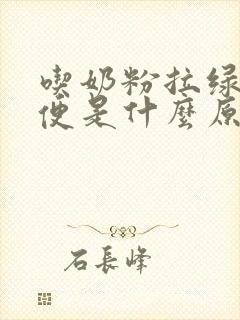 喫奶粉拉绿
便是什麼原
石長峰